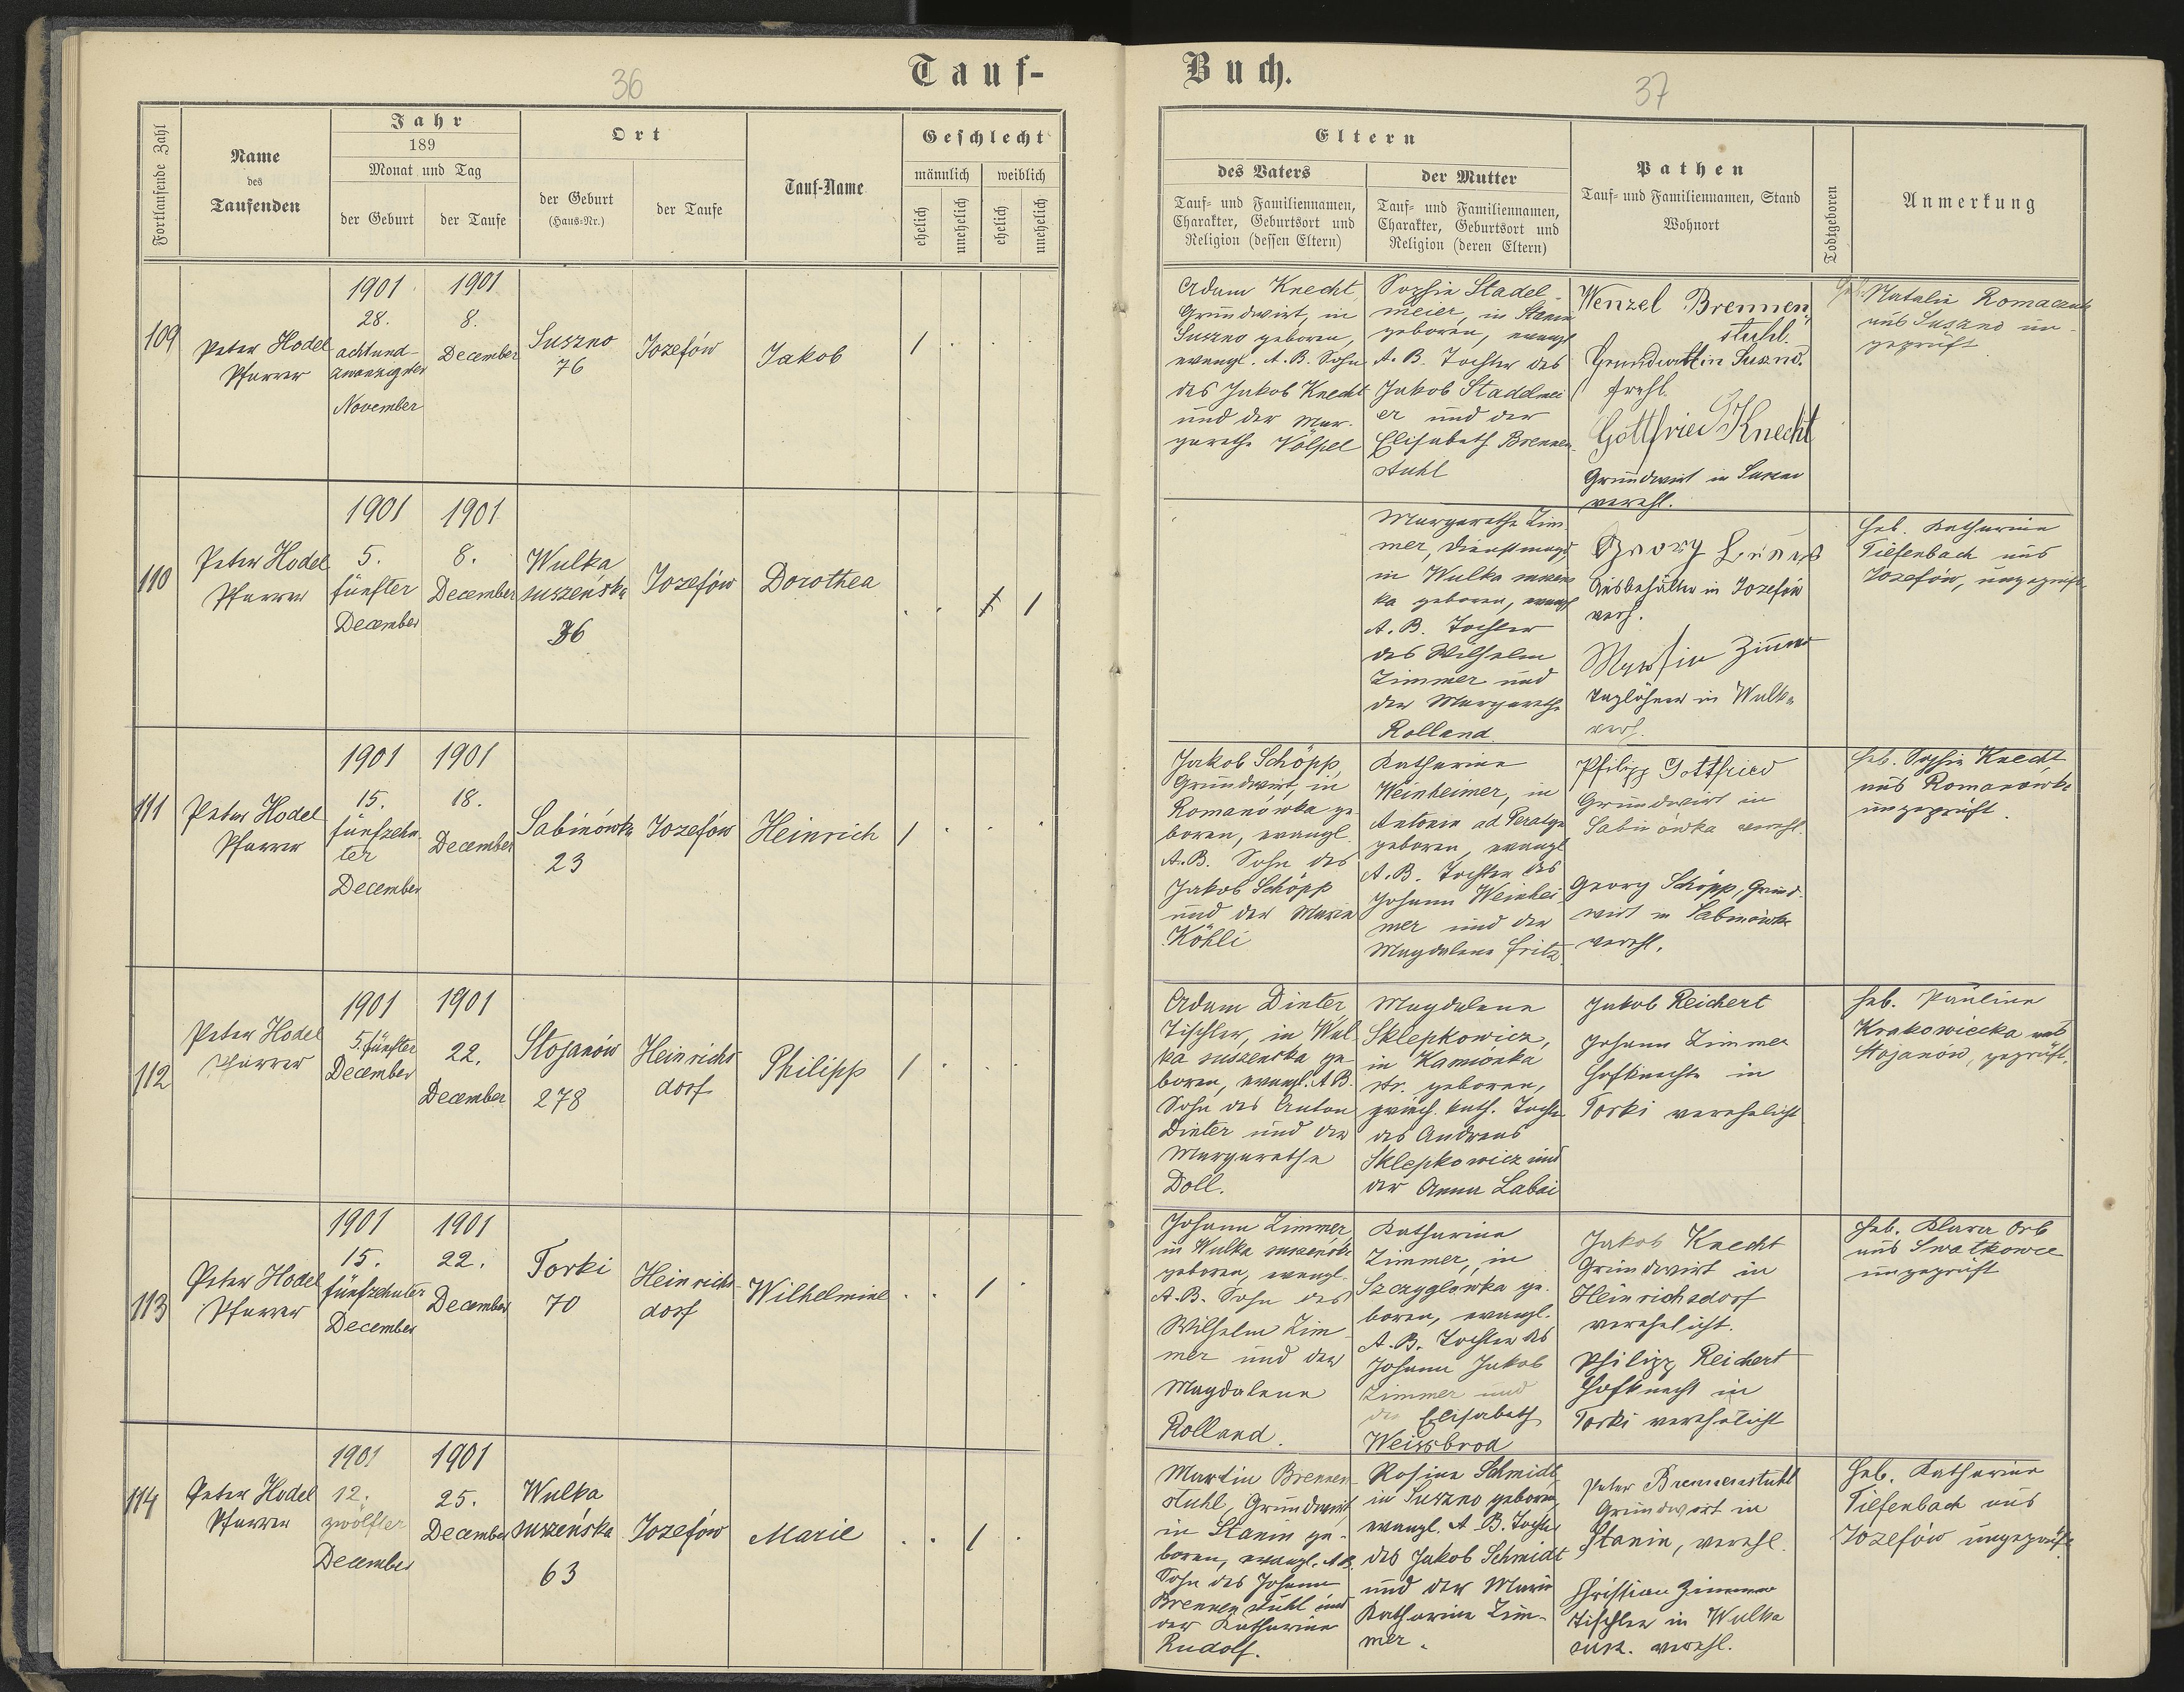 36
Tauf-
Fortlaufende Zahl
Name
des
Taufenden
Jahr
189
Monat und Tag
der Geburt
der Taufe
Ort
der Geburt
(Haus-Nr.)
der Taufe
Tauf-Name
Geschlecht
männlich
weiblich
ehelich
unehelich
ehelich
unehelich
Buch.
37
Eltern
des Vaters
Tauf- und Familiennamen,
Charakter, Geburtsort und
Religion (dessen Eltern)
der Mutter
Tauf- und Familiennamen,
Charakter, Geburtsort und
Religion (deren Eltern)
Pathen
Tauf- und Familiennamen, Stand
Wohnort
Todtgeboren
Anmerkung
109
Peter Hodel
Pfarrer
1901
28.
achtund-
zwanzigster
November
1901
8.
December
Suszno
76
Jozefów
Jakob
1
Adam Knecht,
Grundwirt, in
Suszno geboren,
evangl. A. B. Sohn
des Jakob Knecht
und der Mar-
garethe Völpel
Sophie Stadel-
meier, in Stanin
geboren, evangl
A. B. Tochter des
Jakob Stadelmei
er und der
Elisabeth Brennen-
stuhl
Wenzel Brennen,
stuhl.
Grundwirt in Suszno.
Gottfried Knecht
Grundwirt in Suszno
verehl.
Heb. Natalie Romaczuk
aus Suszno un-
geprüft
110
Peter Hodel
Pfarrer
1901
5.
fünfter
December
1901
8.
December
Wulka
suszeńska
36
Jozefów
Dorothea
1
Margarethe Zim-
mer, Dienstmagd,
in Wulka suszens
ka geboren, evangl
A. B. Tochter
des Wilhelm
Zimmer und
der Margarethe
Rolland
Georg
in Jozefów
verh.
Zimmer
Taglöhner in Wulka
verh.
Heb. Katharina
Tiefenbach aus
Jozefów, ungeprüft
111
Peter Hodel
Pfarrer
1901
15.
fünfzehn-
ter
December
1901
18.
December
Sabinówka
23
Jozefów
Heinrich
1
Jakob Schöpp,
Grundwirt, in
Romanówka ge
boren, evangl.
A. B. Sohn des
Jakob Schöpp
und der Maria
Köhli
Katharina
Weinheimer, in
Antonin ad
geboren, evangl
A. B. Tochter des
Johann Weinhei-
mer und der
Magdalena Fritz.
Philipp Gottfried
Grundwirt in
Sabinówka verehl.
Georg Schöpp, Grund-
wirt in Sabinówka
verehl.
Heb. Sophie Knecht
aus Romanówka
ungeprüft.
112
Peter Hodel
Pfarrer
1901
5. fünfter
December
1901
22.
December
Stojanów
278
Heinrichs
dorf
Philipp
1
Adam Dinter,
Tischler, in Wul
ka suszenska ge-
boren, evangl. A B.
Sohn des Anton
Dinter und der
Margarethe
Doll.
Magdalena
Sklepkowicz,
in Kamionka
str. geboren,
griech. kath. Tochter
des Andreas
Sklepkowicz und
der Anna Labai
Jakob Reichert
Johann Zimmer
Hofknechte in
Torki verehelicht
Heb. Pauline
Krakowiecka aus
Stojanów, geprüft.
113
Peter Hodel
Pfarrer
1901
15.
fünfzehnter
December
1901
22.
December
Torki
70
Heinrichs-
dorf
Wilhelmine
1
Johann Zimmer,
in Wulka suszeńska
geboren, evangl.
A. B. Sohn des
Wilhelm Zim-
mer und der
Magdalena
Rolland.
Katharina
Zimmer, in
Szczyglówka ge-
boren, evangl.
A. B. Tochter des
Johann Jakob
Zimmer und
der Elisabeth
Weissbrod
Jakob Knecht
Grundwirt in
Heinrichsdorf
verehelicht.
Philipp Reichert
Hofknecht in
Torki verehelicht
Heb. Klara Orb
aus
ungeprüft
114
Peter Hodel
Pfarrer
1901
12.
zwölfter
December
1901
25.
December
Wulka
suszeńska
63
Jozefów
Marie
1
Martin Brennen-
stuhl, Grundwirt,
in Stanin ge-
boren, evangl. A B.
Sohn des Johann
Brennenstuhl und
der Katharina
Rudolf.
Rosina Schmidt,
in Suszno geboren,
evangl. A. B. Tochter
des Jakob Schmidt
und der Maria
Katharina Zim-
mer.
Peter Brennenstuhl
Grundwirt in
Stanin, verehl.
Christian Zimmer
Tischler in Wulka
susz. verehl.
Heb. Katharina
Tiefenbach aus
Jozefów ungeprüft.